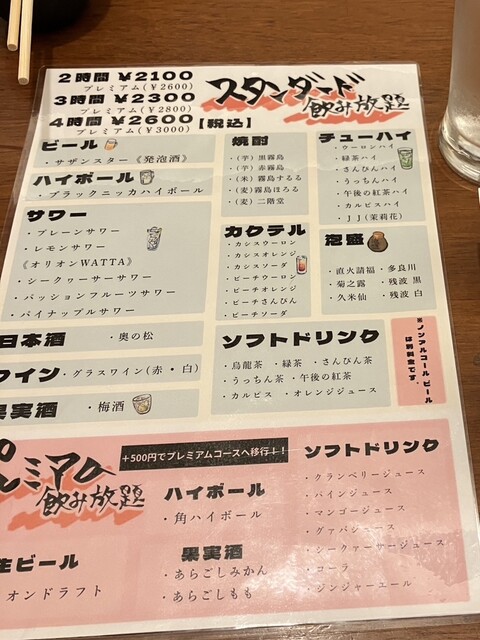 2時間 ¥2100
プレミアム(¥2600)
3時間 ¥2300
プレミアム(¥2800)
4時間 ¥2600【税込】
プレミアム(¥3000)
スタンダード
飲み放題
ビール
・サザンスター《発泡酒》
ハイボール
・ブラックニッカハイボール
サワー
・プレーンサワー
・レモンサワー
《オリオンWATTA》
・シークヮーサーサワー
・パッションフルーツサワー
・パイナップルサワー
日本酒
・奥の松
ワイン
・グラスワイン(赤・白)
果実酒
・梅酒
焼酎
・(芋)黒霧島
・(芋)赤霧島
・(米)霧島するる
・(麦)霧島ほろる
・(麦)二階堂
カクテル
・カシスウーロン
・カシスオレンジ
・カシスソーダ
・ピーチウーロン
・ピーチオレンジ
・ピーチさんぴん
・ピーチソーダ
チューハイ
・ウーロンハイ
・緑茶ハイ
・さんぴんハイ
・うっちんハイ
・午後の紅茶ハイ
・カルピスハイ
・JJ(茉莉花)
泡盛
・直火請福 ・多良川
・菊之露 ・残波 黒
・久米仙 ・残波 白
ソフトドリンク
・烏龍茶 ・緑茶 ・さんぴん茶
・うっちん茶 ・午後の紅茶
・カルピス ・オレンジジュース
※ノンアルコールビール
は別料金です。
プレミアム
飲み放題
+500円でプレミアムコースへ移行!!
生ビール
オンドラフト
ハイボール
・角ハイボール
果実酒
・あらごしみかん
・あらごしもも
ソフトドリンク
・クランベリージュース
・パインジュース
・マンゴージュース
・グァバジュース
・シークァーサージュース
・コーラ
・ジンジャーエール